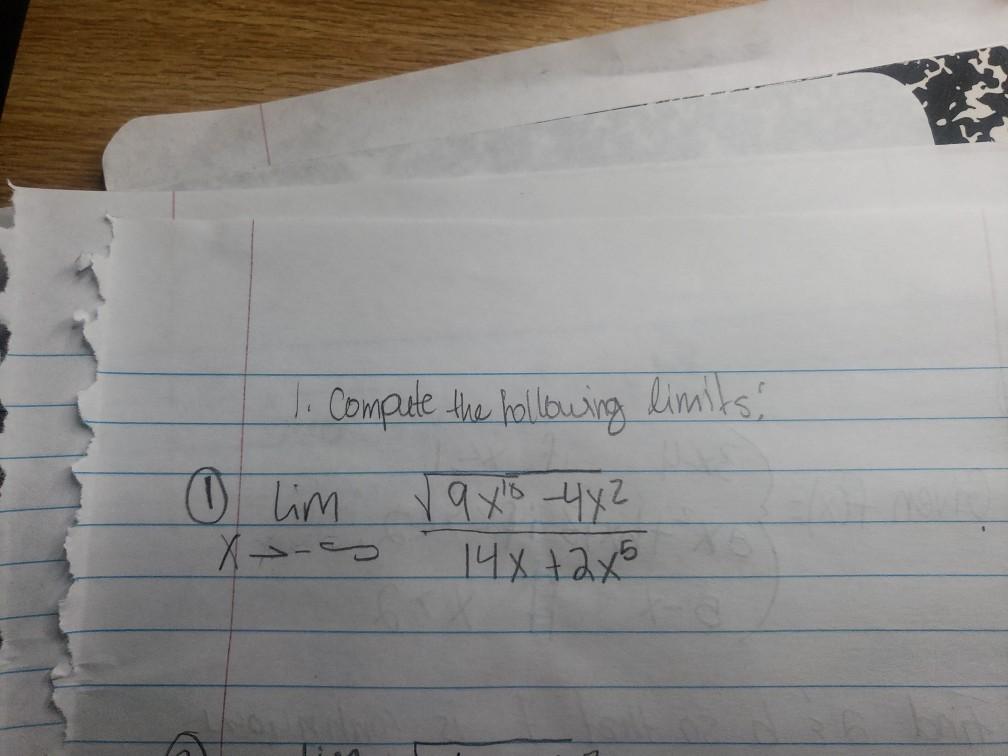 1. Compute the following limits:
① lim √9x¹⁰ -4x²
x→-∞ 14x +2x⁵